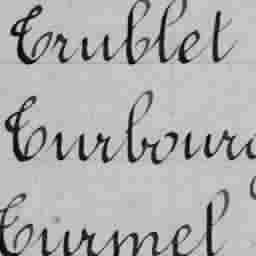 Trublet
Turbourg
Turmel